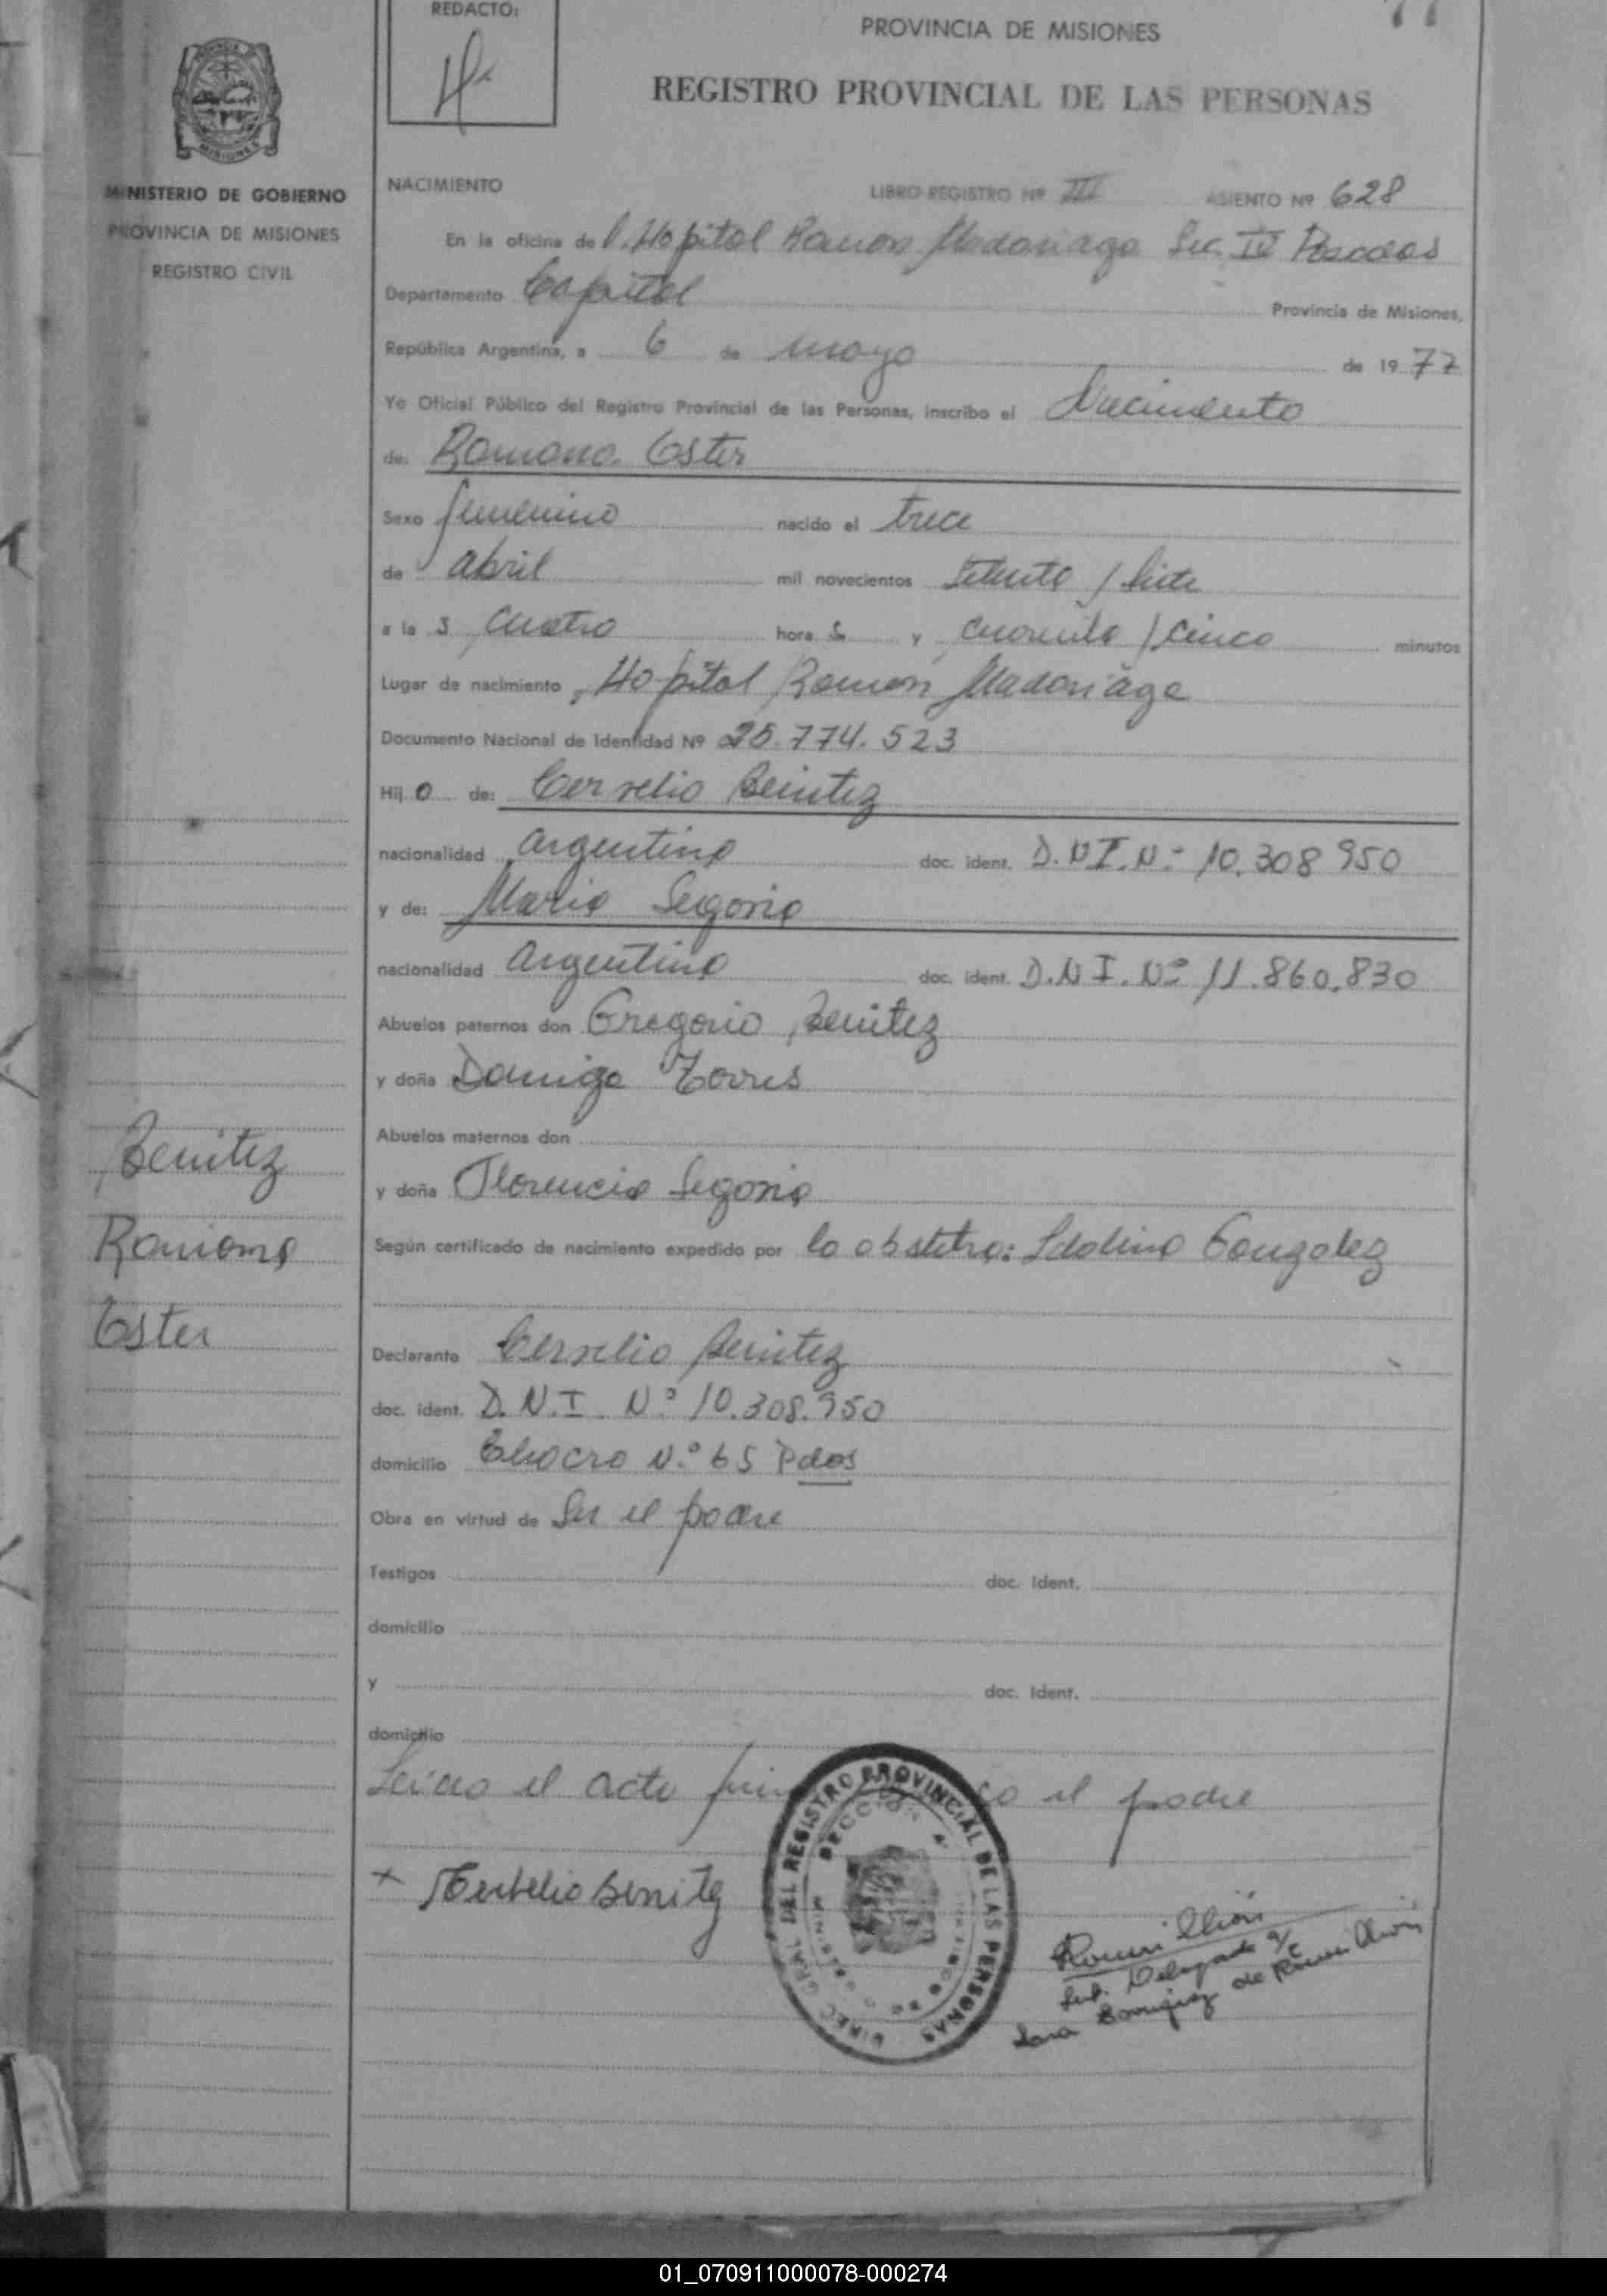 REDACTO:
PROVINCIA DE MISIONES
REGISTRO PROVINCIAL DE LAS PERSONAS
MISIONES
MINISTERIO DE GOBIERNO
PROVINCIA DE MISIONES
REGISTRO CIVIL
NACIMIENTO LIBRO REGISTRO Nº III ASIENTO Nº 628
En la oficina de Hopital Ramon Madariaga Sec. IV Posadas
Departamento Capital Provincia de Misiones,
República Argentina, a 6 de mayo de 1977
Yo Oficial Público del Registro Provincial de las Personas, inscribo el Nacimiento
de: Ramona Ester
Sexo femenino nacido el trece
de abril mil novecientos setenta / siete
a las cuatro horas y cuarenta / cinco minutos
Lugar de nacimiento Hopital Ramon Madariaga
Documento Nacional de Identidad Nº 25.774.523
Hij o de: Benitez
nacionalidad argentina doc. ident. D.N.I.Nº 10.308 950
y de: Maria Segovia
nacionalidad argentina doc. ident. D.N.I.Nº 11.860.830
Abuelos paternos don Gregorio Benitez
y doña Torres
Abuelos maternos don
y doña Florencia Segovia
Según certificado de nacimiento expedido por la obstetra: Idalina Gonzalez
Declarante Benitez
doc. ident. D.N.I. Nº 10.308.950
domicilio Chacra Nº 65 Pdas
Obra en virtud de ser el padre
Testigos doc. ident.
domicilio
y doc. ident.
domicilio
Leida el acta el padre
Benitez
Ramona
Ester
DIREC. GRAL. DEL REGISTRO PROVINCIAL DE LAS PERSONAS
01_070911000078-000274